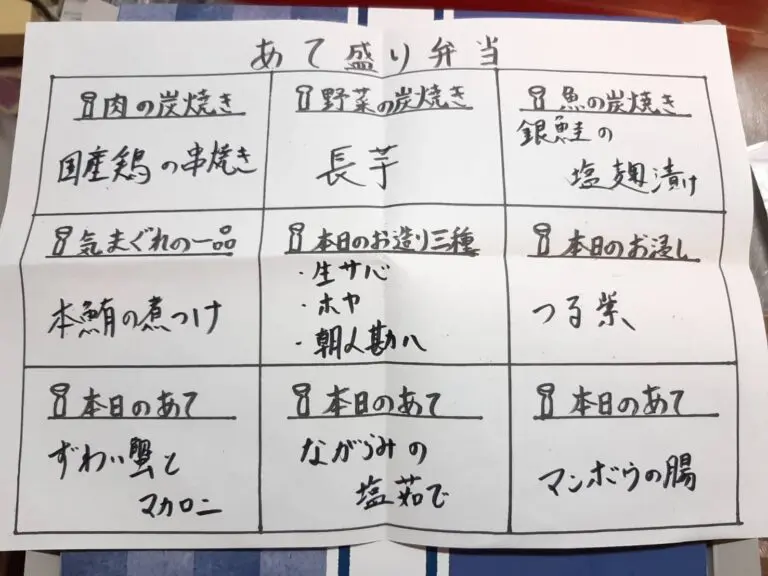 あて盛り弁当
肉の炭焼き
国産鶏の串焼き
野菜の炭焼き
長芋
魚の炭焼き
銀鮭の
塩麹漬け
気まぐれの一品
本鮪の煮つけ
本日のお造り三種
・生サバ
・ホヤ
・朝〆勘八
本日のお浸し
つる紫
本日のあて
ずわい蟹と
マカロニ
本日のあて
ながらみの
塩茹で
本日のあて
マンボウの腸